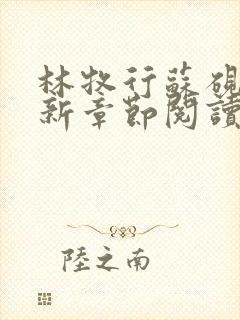 林牧行蘇硯
新章節閱讀
陸之南